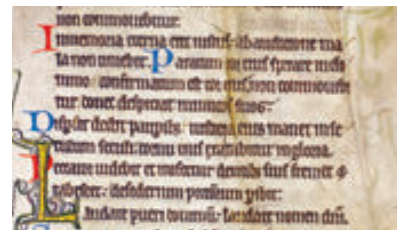 non commouebitur.
In memoria eterna erit iustus: ab auditione ma
la non timebit. Paratum cor eius sperare in do
mino: confirmatum est cor eius, non commouebi
tur donec despiciat inimicos suos.
Dispsit dedit paupibus: iusticia eius manet in se
culum seculi: cornu eius exaltabitur in gloria.
Peccator uidebit et irascetur dentibus suis fremet &
tabescet: desiderium peccatorum peribit.
Laudate pueri dominum: laudate nomen dni.